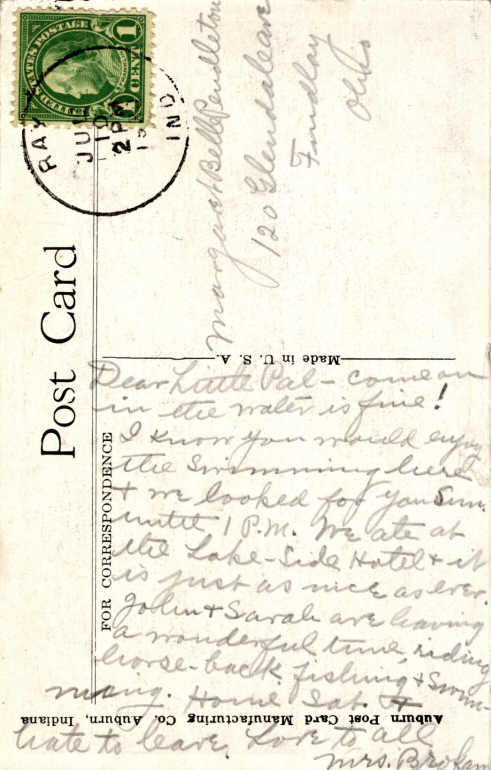 UNITED STATES POSTAGE
1 CENT 1
RAY
JUL
10
2 PM
IND.
Margaret Bell Pendleton
120 Glendale ave
Findlay
Ohio
Post Card
Made in U. S. A.
FOR CORRESPONDENCE
Dear Little Pal - come on
in the water is fine!
I know you would enjoy
the swimming here
+ we looked for you Sun.
until 1 P.M. We ate at
the Lake-Side Hotel + it
is just as nice as ever.
John + Sarah are having
a wonderful time, riding
horse-back, fishing, + swim-
ming. Home Sat. +
hate to leave. Love to all
Mrs.
Auburn Post Card Manufacturing Co. Auburn, Indiana